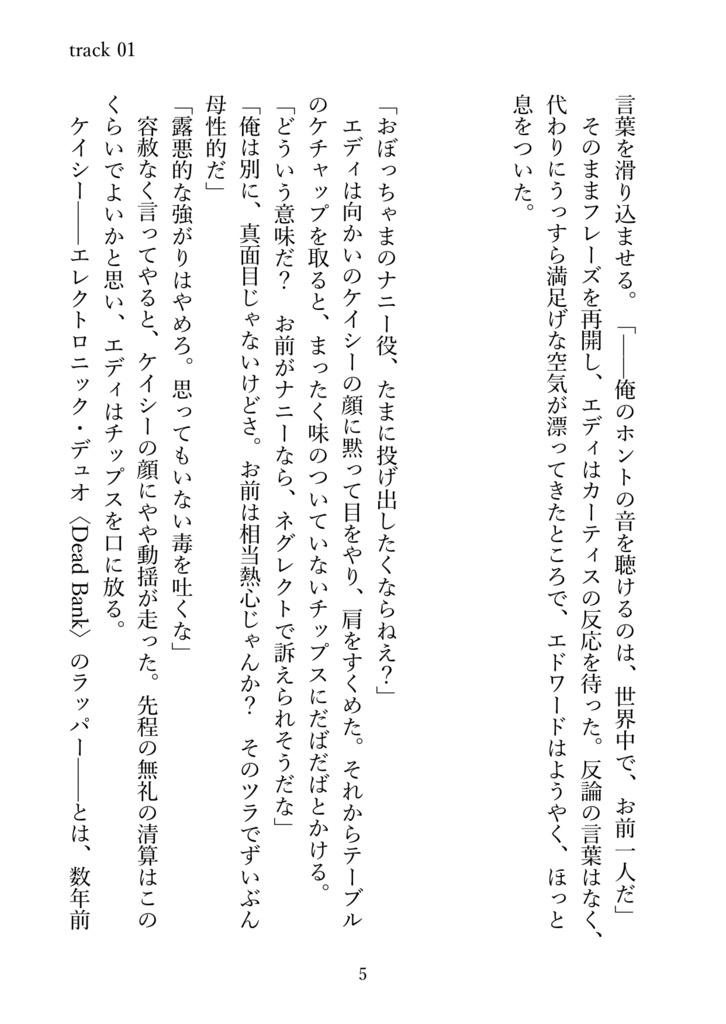 track 01
言葉を滑り込ませる。「――俺のホントの音を聴けるのは、世界中で、お前一人だ」
そのままフレーズを再開し、エディはカーティスの反応を待った。反論の言葉はなく、
代わりにうっすら満足げな空気が漂ってきたところで、エドワードはようやく、ほっと
息をついた。
「おぼっちゃまのナニー役、たまに投げ出したくならねえ?」
エディは向かいのケイシーの顔に黙って目をやり、肩をすくめた。それからテーブル
のケチャップを取ると、まったく味のついていないチップスにだばだばとかける。
「どういう意味だ? お前がナニーなら、ネグレクトで訴えられそうだな」
「俺は別に、真面目じゃないけどさ。お前は相当熱心じゃんか? そのツラでずいぶん
母性的だ」
「露悪的な強がりはやめろ。思ってもいない毒を吐くな」
容赦なく言ってやると、ケイシーの顔にやや動揺が走った。先程の無礼の清算はこの
くらいでよいかと思い、エディはチップスを口に放る。
ケイシー――エレクトロニック・デュオ〈Dead Bank〉のラッパー――とは、数年前
5